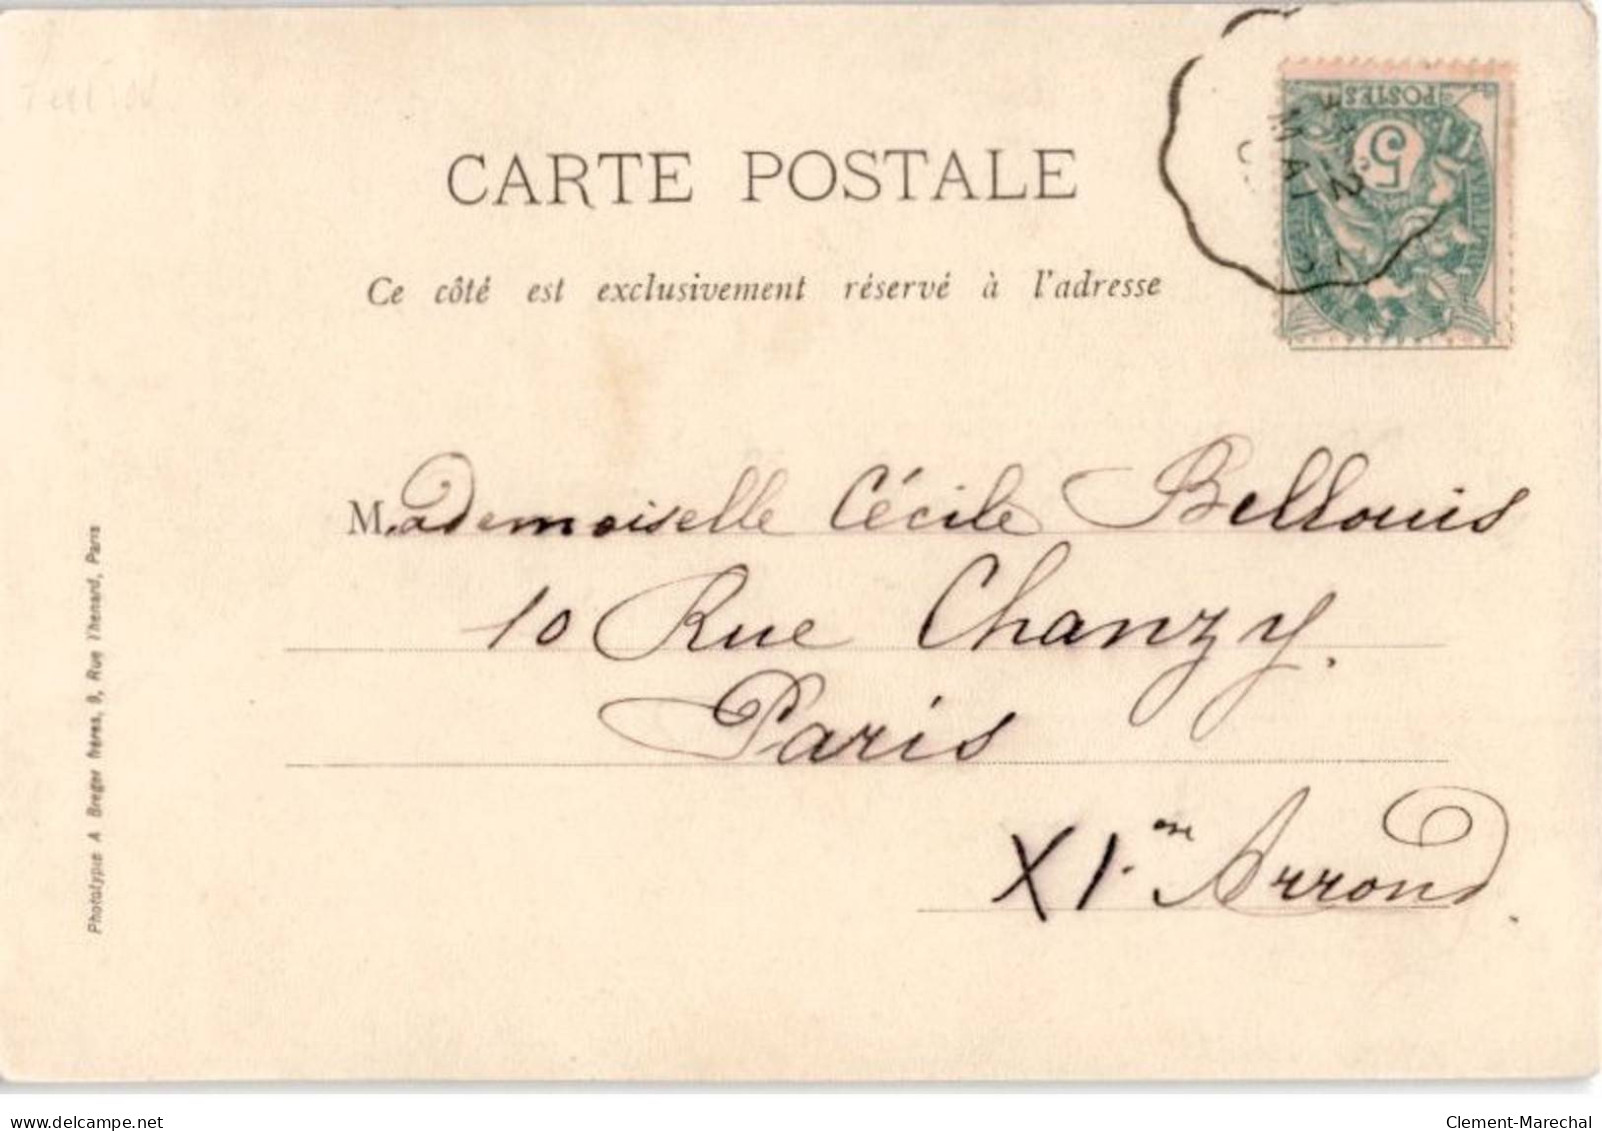 CARTE POSTALE
Ce côté est exclusivement réservé à l'adresse
POSTES
5
2
MAI
Mademoiselle Cécile Bellouis
10 Rue Chanzy.
Paris
XIème Arrond.
Phototypie A Breger frères, 9, Rue Thenard, Paris
delcampe.net
Clement-Marechal